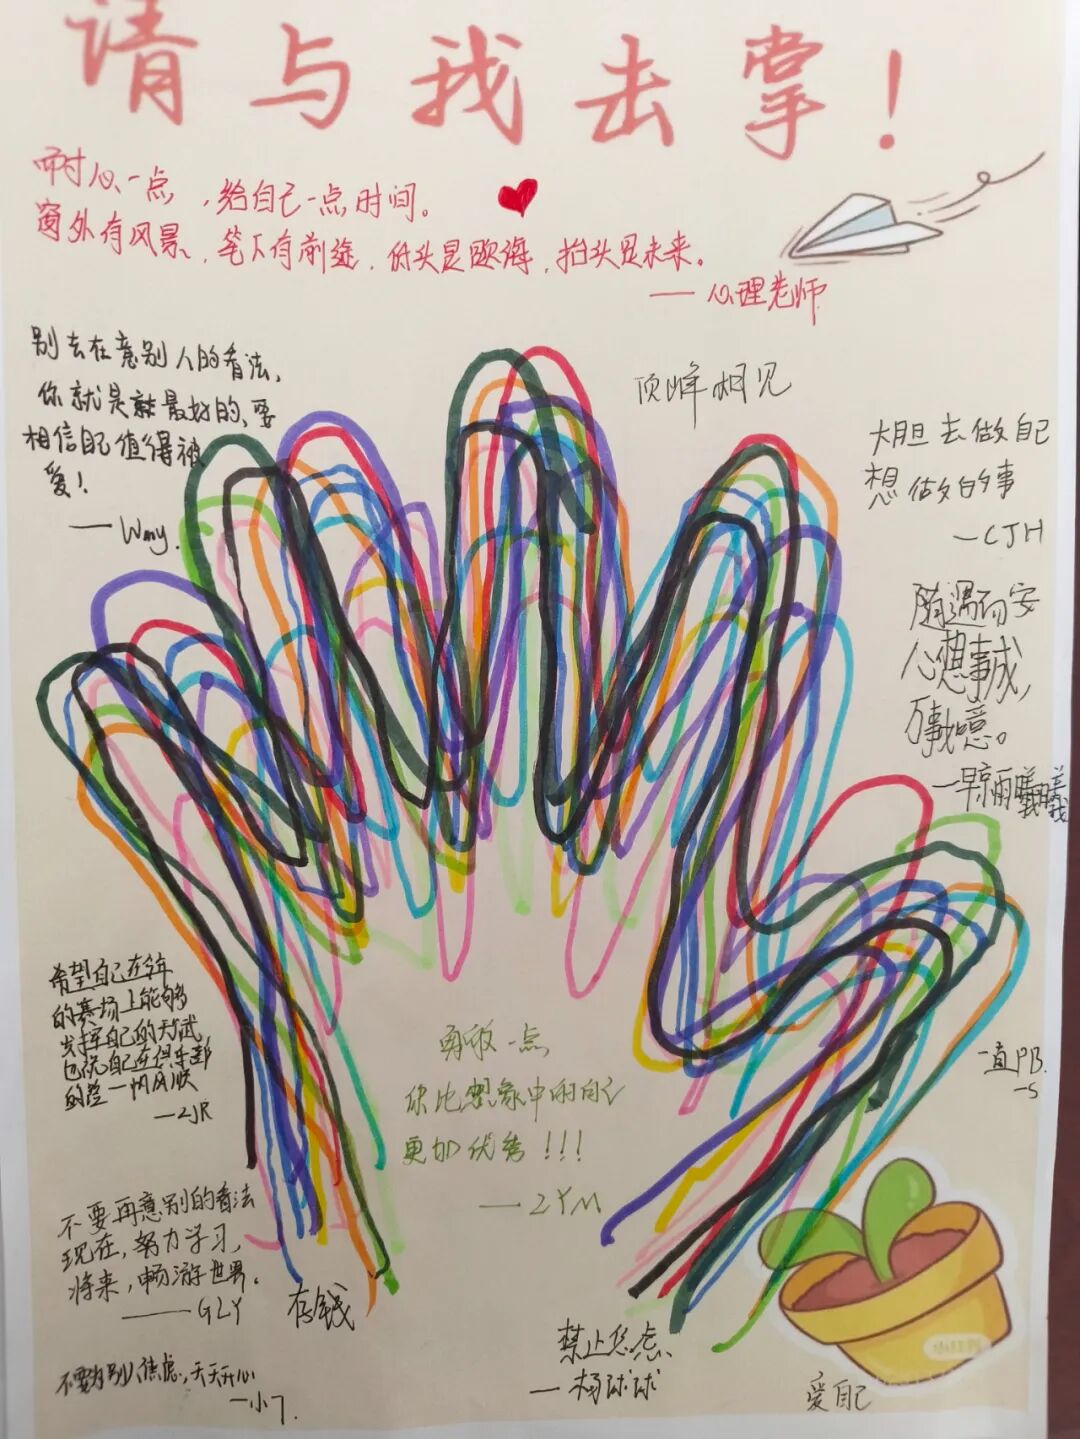 请与我去掌!
耐心一点,给自己一点时间。
窗外有风景,笔下有前途,低头是题海,抬头是未来。
——心理老师
别去在意别人的看法,
你就是最好的,要
相信自己值得被
爱!
——Wmy.
顶峰相见
大胆去做自己
想做的事
—CJH
随遇而安
心想事成,
万事如意。
—早凉雨曦曦
希望自己在
的赛场上能够
发挥自己的天赋
也祝自己在俱乐部
的 一帆风顺
—ZJR
勇敢一点
你比想象中的自己
更加优秀!!!
—ZYM
一直PB.
—S
不要再意别的看法
现在,努力学习,
将来,畅游世界。
——GLY
存钱
不要为别人焦虑,天天开心
—小丁.
禁止焦虑
—杨球球
爱自己
小红书